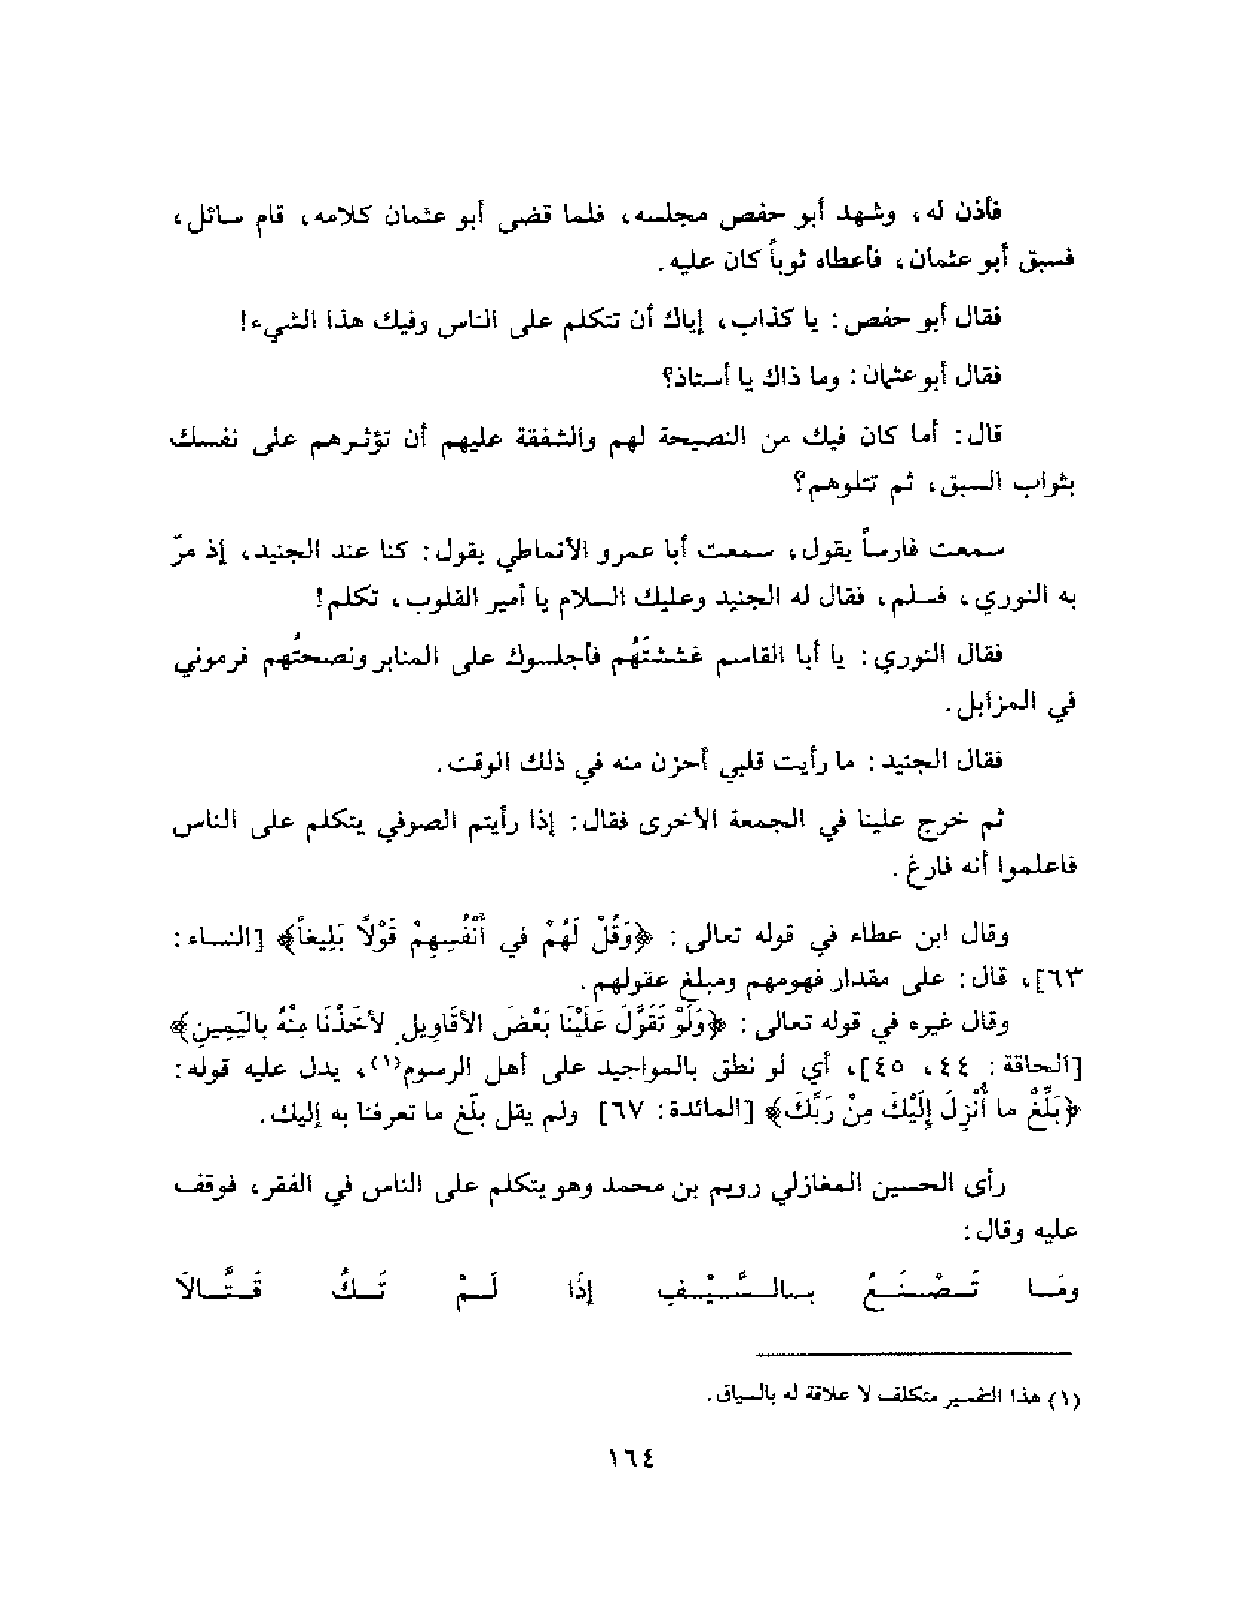 فأذن له، وشهد أبو حفص مجلسه، فلما قضى أبو عثمان كلامه، قام سائل،
فسبق أبو عثمان، فاعطاه ثوباً كان عليه.
فقال أبو حفص: يا كذاب، إياك أن تتكلم على الناس وفيك هذا الشيء!
فقال أبو عثمان: وما ذاك يا أستاذ؟
قال: أما كان فيك من النصيحة لهم والشفقة عليهم أن تؤثرهم على نفسك
بثواب السبق، ثم تتلوهم؟
سمعت فارساً يقول، سمعت أبا عمرو الأنماطي يقول: كنا عند الجنيد، إذ مرّ
به النوري، فسلم، فقال له الجنيد وعليك السلام يا أمير القلوب، تكلم!
فقال النوري: يا أبا القاسم غششتَهُم فاجلسوك على المنابر ونصحتُهم فرموني
في المزابل.
فقال الجنيد: ما رأيت قلبي أحزن منه في ذلك الوقت.
ثم خرج علينا في الجمعة الأخرى فقال: إذا رأيتم الصوفي يتكلم على الناس
فاعلموا أنه فارغ.
وقال ابن عطاء في قوله تعالى: ﴿وَقُلْ لَهُمْ في أَنْفُسِهِمْ قَوْلاً بَلِيغاً﴾ [النساء:
٦٣]، قال: على مقدار فهومهم ومبلغ عقولهم.
وقال غيره في قوله تعالى: ﴿وَلَوْ تَقَوَّلَ عَلَيْنَا بَعْضَ الأقَاوِيلِ لأخَذْنَا مِنْهُ بالْيَمِينِ﴾
[الحاقة: ٤٤، ٤٥]، أي لو نطق بالمواجيد على أهل الرسوم(١)، يدل عليه قوله:
﴿بَلِّغْ ما أُنْزِلَ إلَيْكَ مِنْ رَبِّكَ﴾ [المائدة: ٦٧] ولم يقل بلّغ ما تعرفنا به إليك.
رأى الحسين المغازلي رويم بن محمد وهو يتكلم على الناس في الفقر، فوقف
عليه وقال:
ومَا تَصْنَعُ بالسَّيْفِ إذَا لَمْ تَكُ قَتَّالاَ
(١) هذا التفسير متكلف لا علاقة له بالسياق.
١٦٤